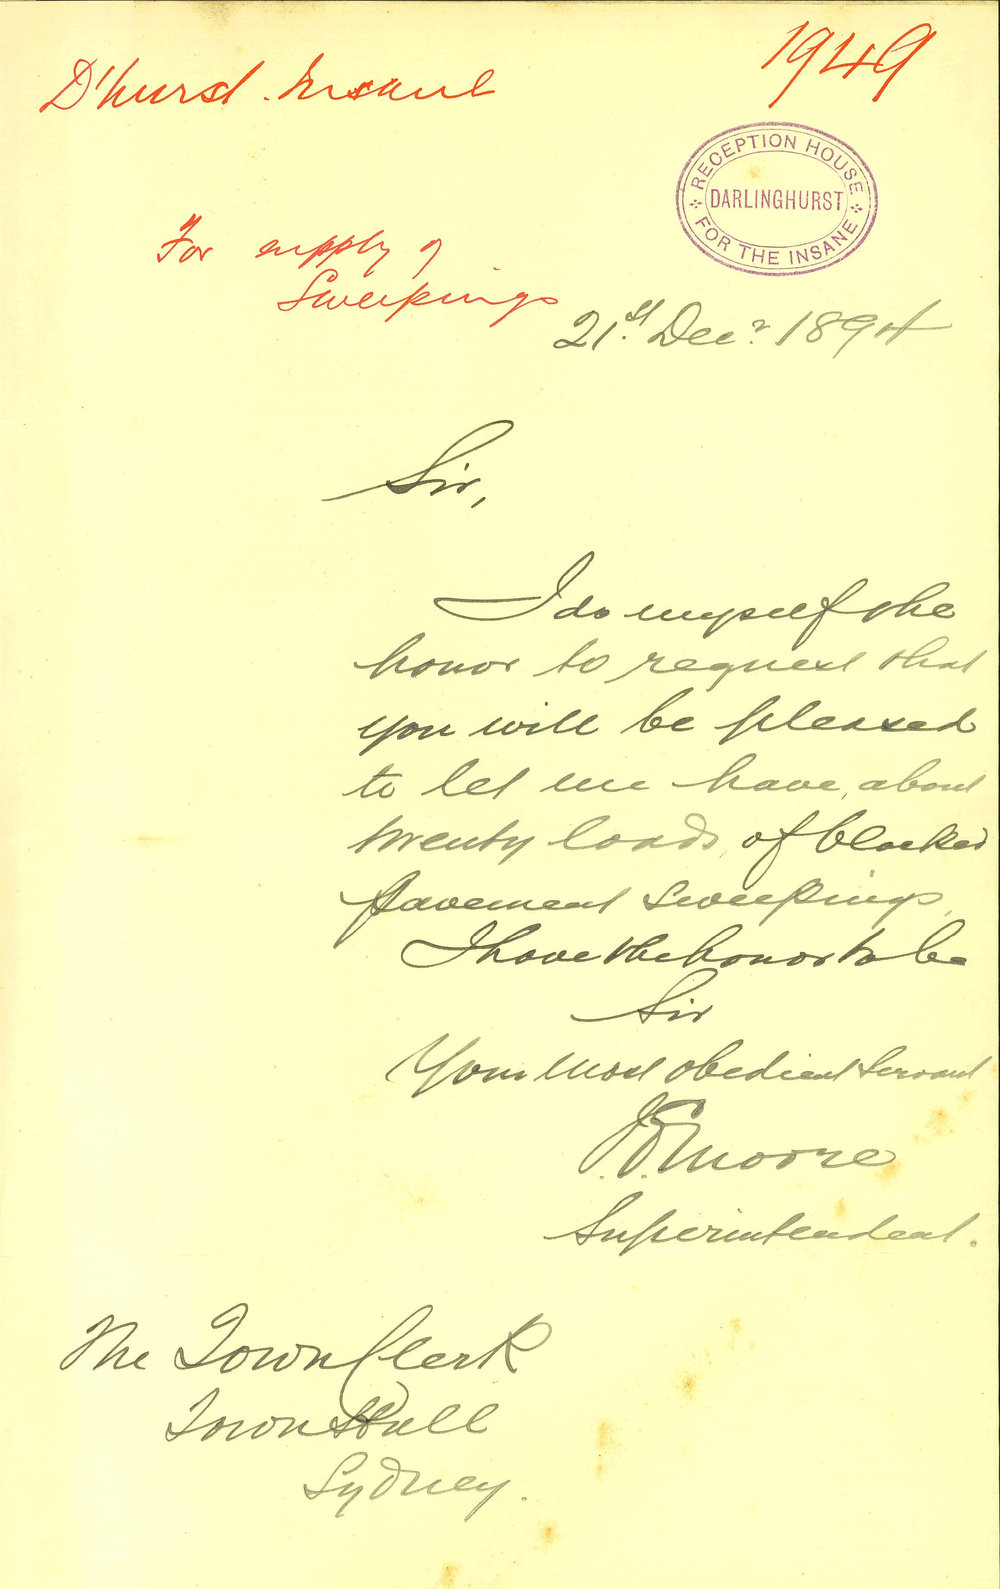 D'hurst. Insane
1949
RECEPTION HOUSE
DARLINGHURST
FOR THE INSANE
For supply of
Sweepings
21st. Decr. 1894
Sir,
I do myself the
honor to request that
you will be pleased
to let me have, about
twenty loads, of blocked
pavement sweepings,
I have the honor to be
Sir
Your most obedient Servant
Moore
Superintendent.
The Town Clerk
Town Hall
Sydney.